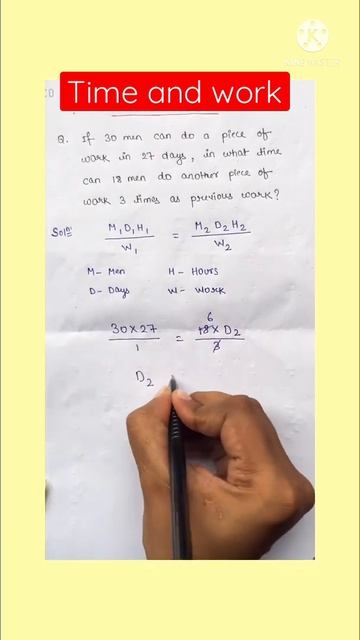 KINEMASTER
Time and work
Q. If 30 men can do a piece of
work in 27 days, in what time
can 18 men do another piece of
work 3 times as previous work?
Soln:
M₁D₁H₁ / W₁ = M₂D₂H₂ / W₂
M- Men H- Hours
D- Days W- Work
6
30×27 / 1 = 18× D₂ / 3
D₂